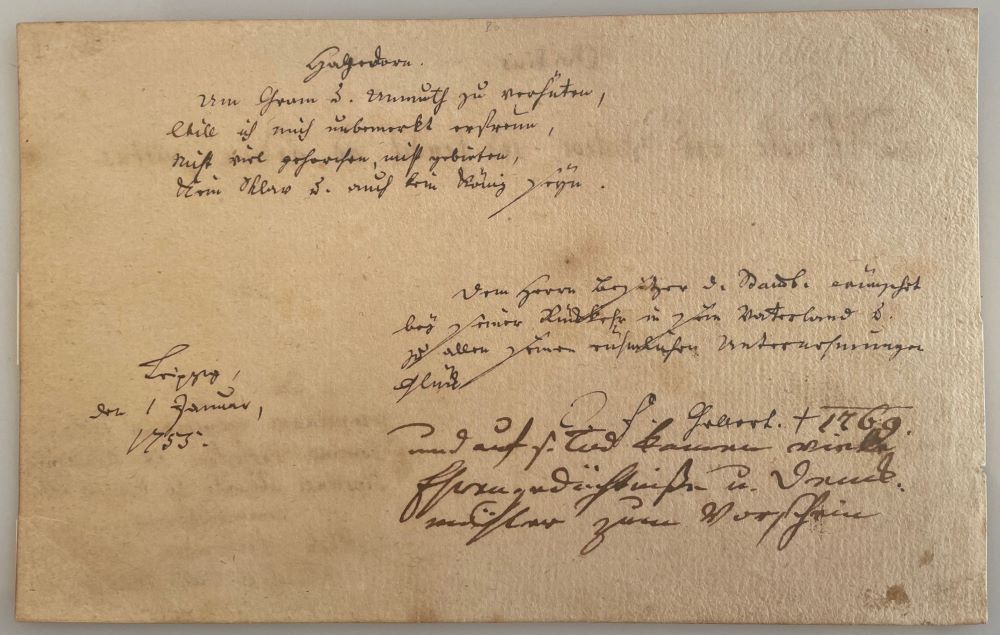 Hagedorn.
Um Gram u. Unmuth zu verhüten,
Will ich mich unbemerkt erfreun,
Nicht viel gehorchen, nicht gebieten,
Kein Sklav u. auch kein König seyn.
Dem Herrn Besitzer d. Stamb. wünschet
bey seiner Rückkehr in sein Vaterland u.
zu allen seinen rühmlichen Unternehmungen
Glück
C. F. Gellert. † 1769.
Leipzig,
den 1 Januar,
1755.
und auf s. Tod kamen viele
Ehrengedächtniße u. Denck-
mähler zum Vorschein